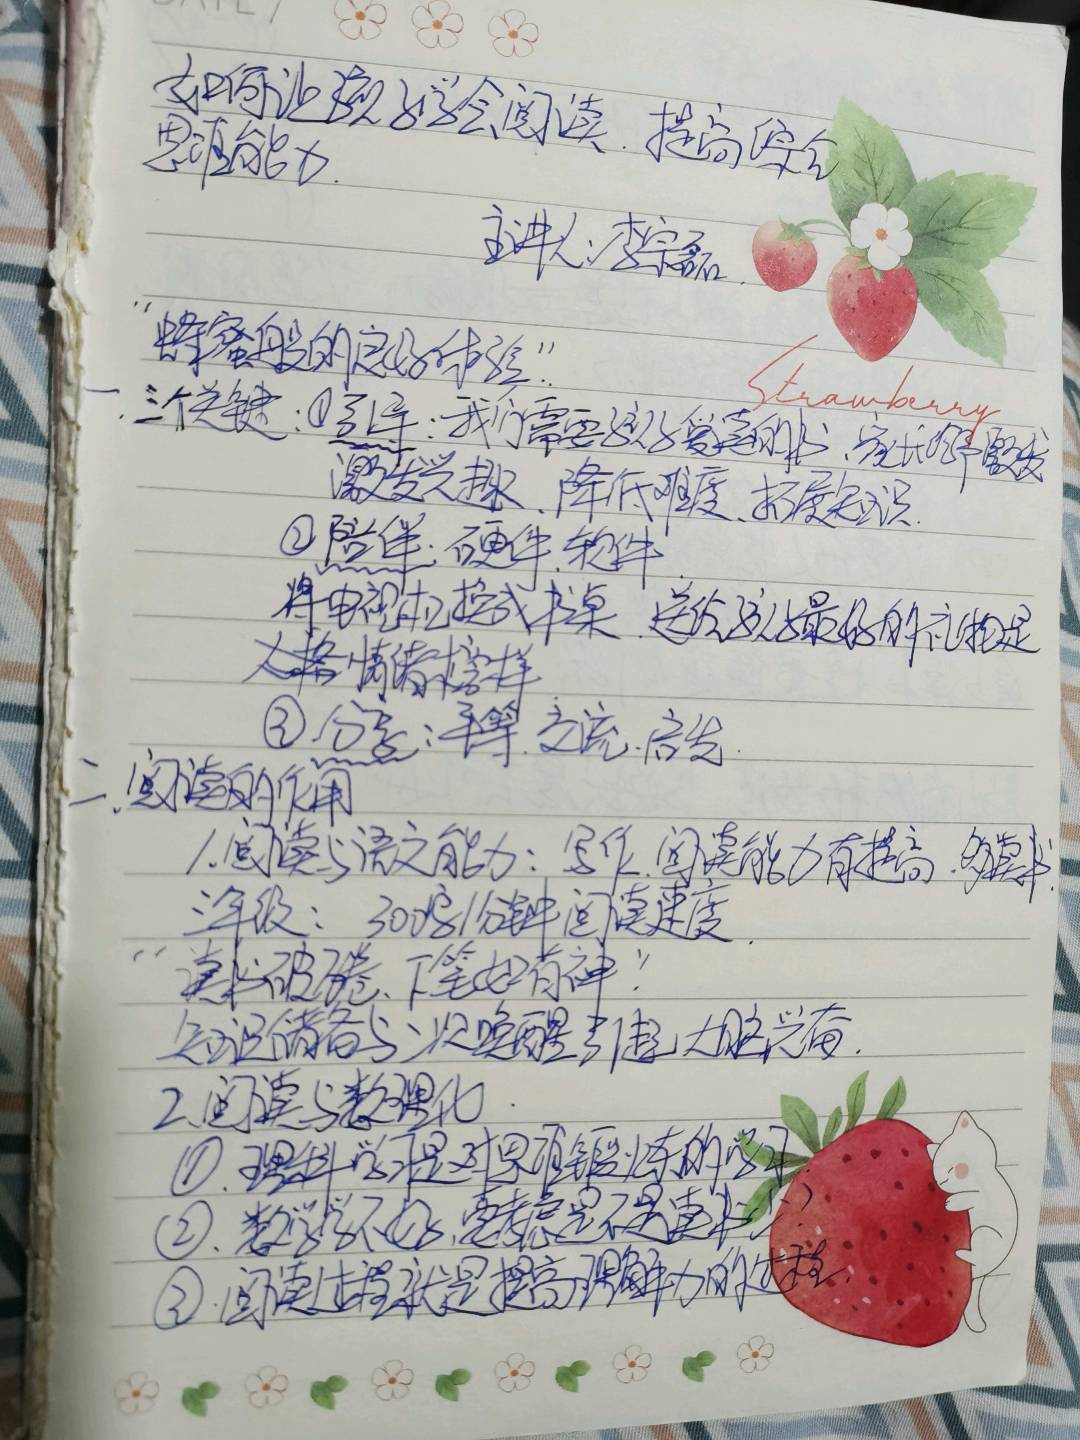 DATE /
如何让孩子学会阅读、提高综合
思维能力.
主讲人:李宗磊.
"蜂蜜般的良好体验"
Strawberry
一.三个关键:①引导:我们需要孩子爱读的书、家长的
激发兴趣、降低难度、拓展知识.
②陪伴:硬件、软件
将电视机换成书桌、送给孩子最好的礼物是
人格情绪榜样
③分享:平等、交流、启发.
二.阅读的作用
1.阅读与语文能力:写作、阅读能力有提高、多读书.
三年级: 300字/分钟阅读速度.
"读书破万卷、下笔如有神"
知识储备与一次唤醒引起大脑兴奋.
2.阅读与数理化.
①.理科学习是对思维锻炼的学习
②.数学学不好,要考虑是不是读书少
③.阅读过程就是提高理解力的过程.